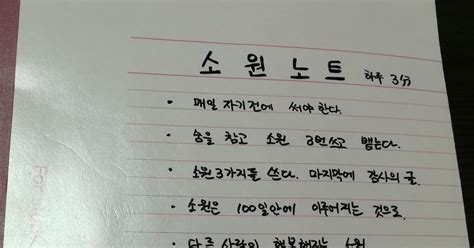 소원노트 하루 3分
• 매일 자기전에 써야 한다.
• 숨을 참고 소원 3번쓰고 뱉는다.
• 소원3가지를 쓴다. 마지막에 감사의 글.
• 소원은 100일안에 이루어지는 것으로.
다른 사람이 행복해지는 소원